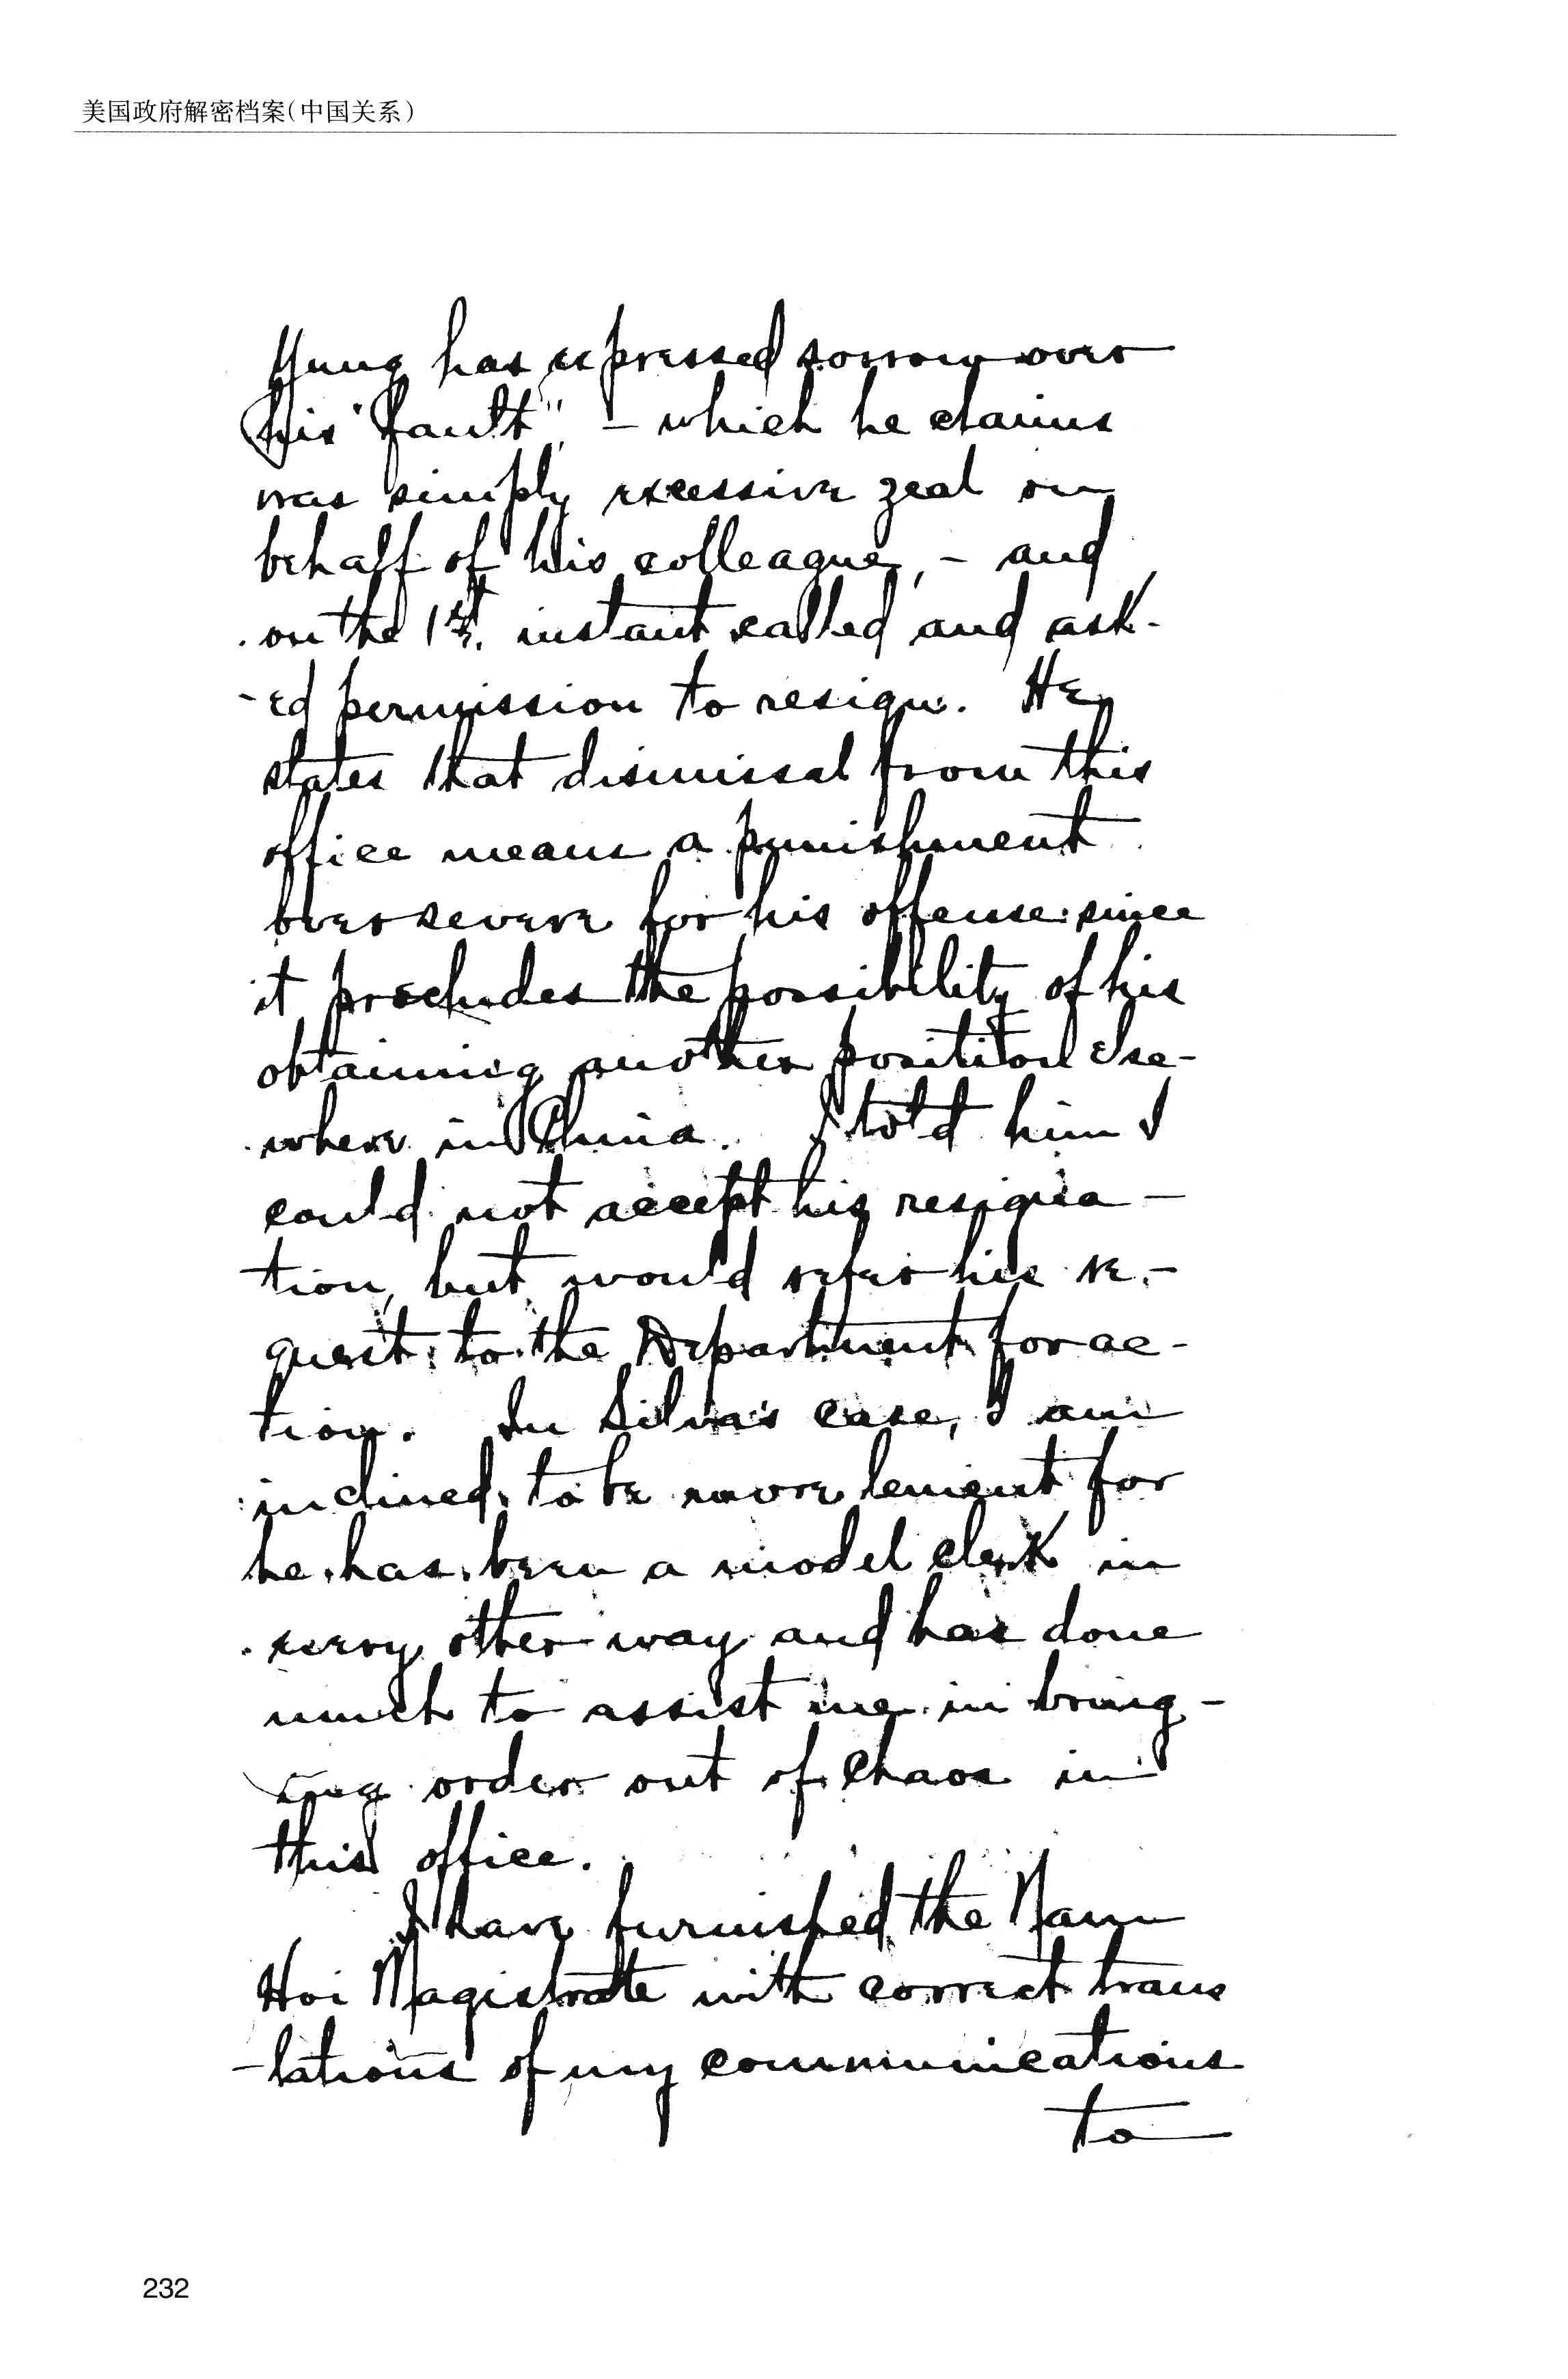 美国政府解密档案(中国关系)
Yung has expressed sorrow over
his "fault", - which he claims
was simply excessive zeal on
behalf of his colleague, - and
on the 1st. instant called and ask-
-ed permission to resign. He
states that dismissal from this
office means a punishment
over severe for his offense since
it precludes the possibility of his
obtaining another position else-
where in China. I told him I
could not accept his resigna-
tion, but would refer his re-
quest to the Department for ac-
tion. In Silva's case, I am
inclined to be more lenient for
he has been a model clerk in
every other way and has done
much to assist me in bring-
ing order out of chaos in
this office.
I have furnished the Nam
Hoi Magistrate with correct trans
-lations of my communications
to
232